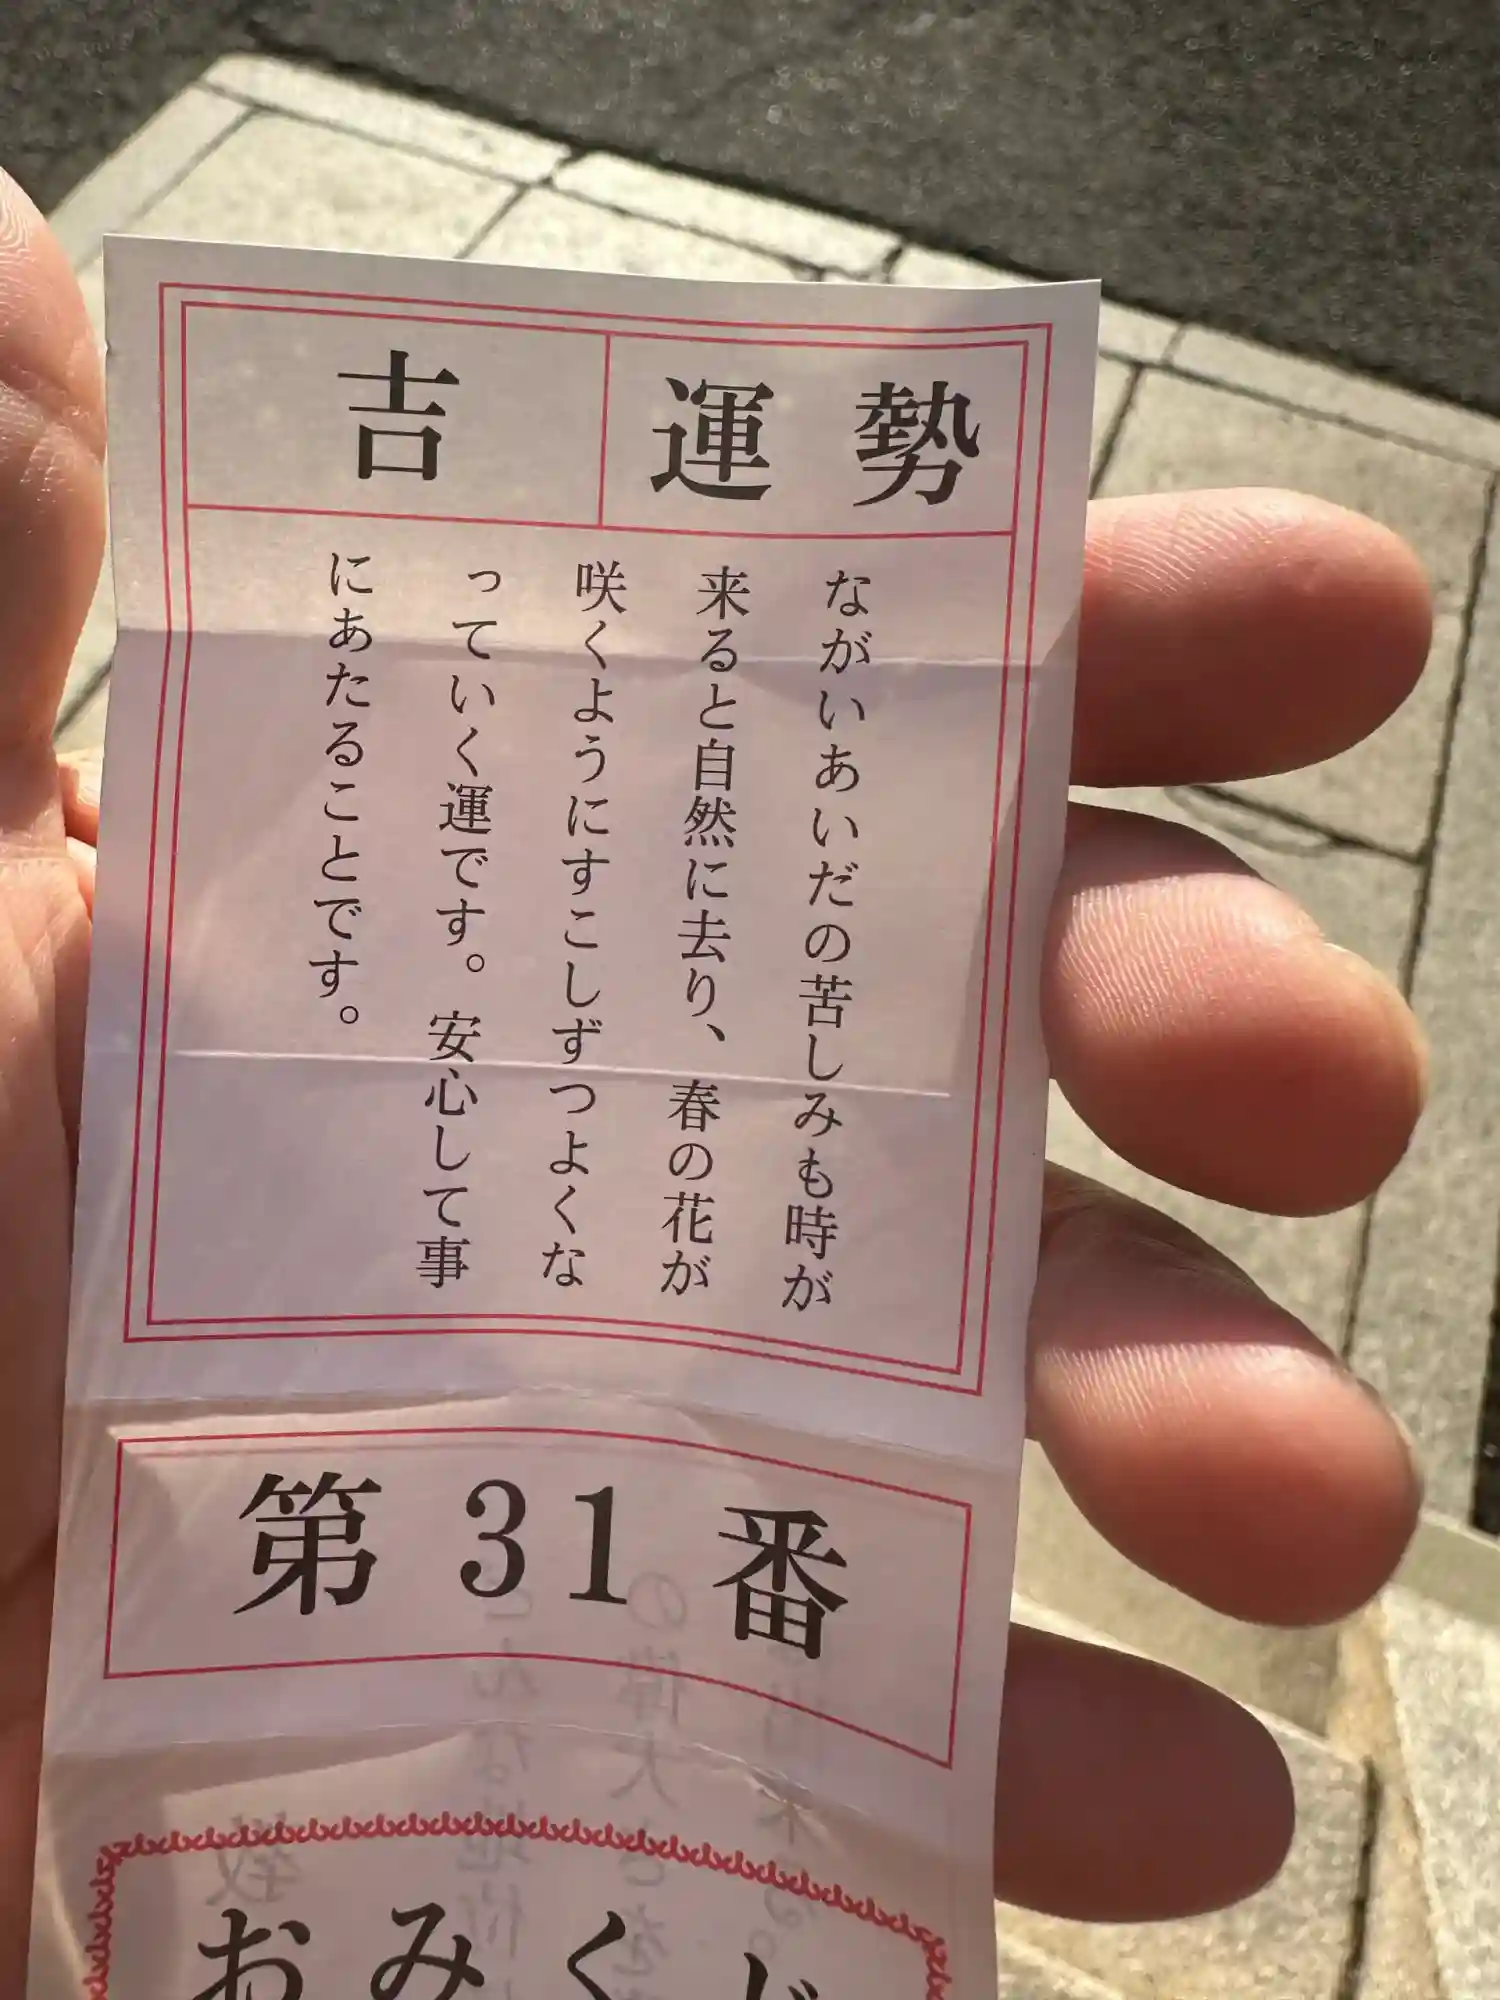 吉
運勢
ながいあいだの苦しみも時が
来ると自然に去り、春の花が
咲くようにすこしずつよくな
っていく運です。安心して事
にあたることです。
第31番
おみくじ